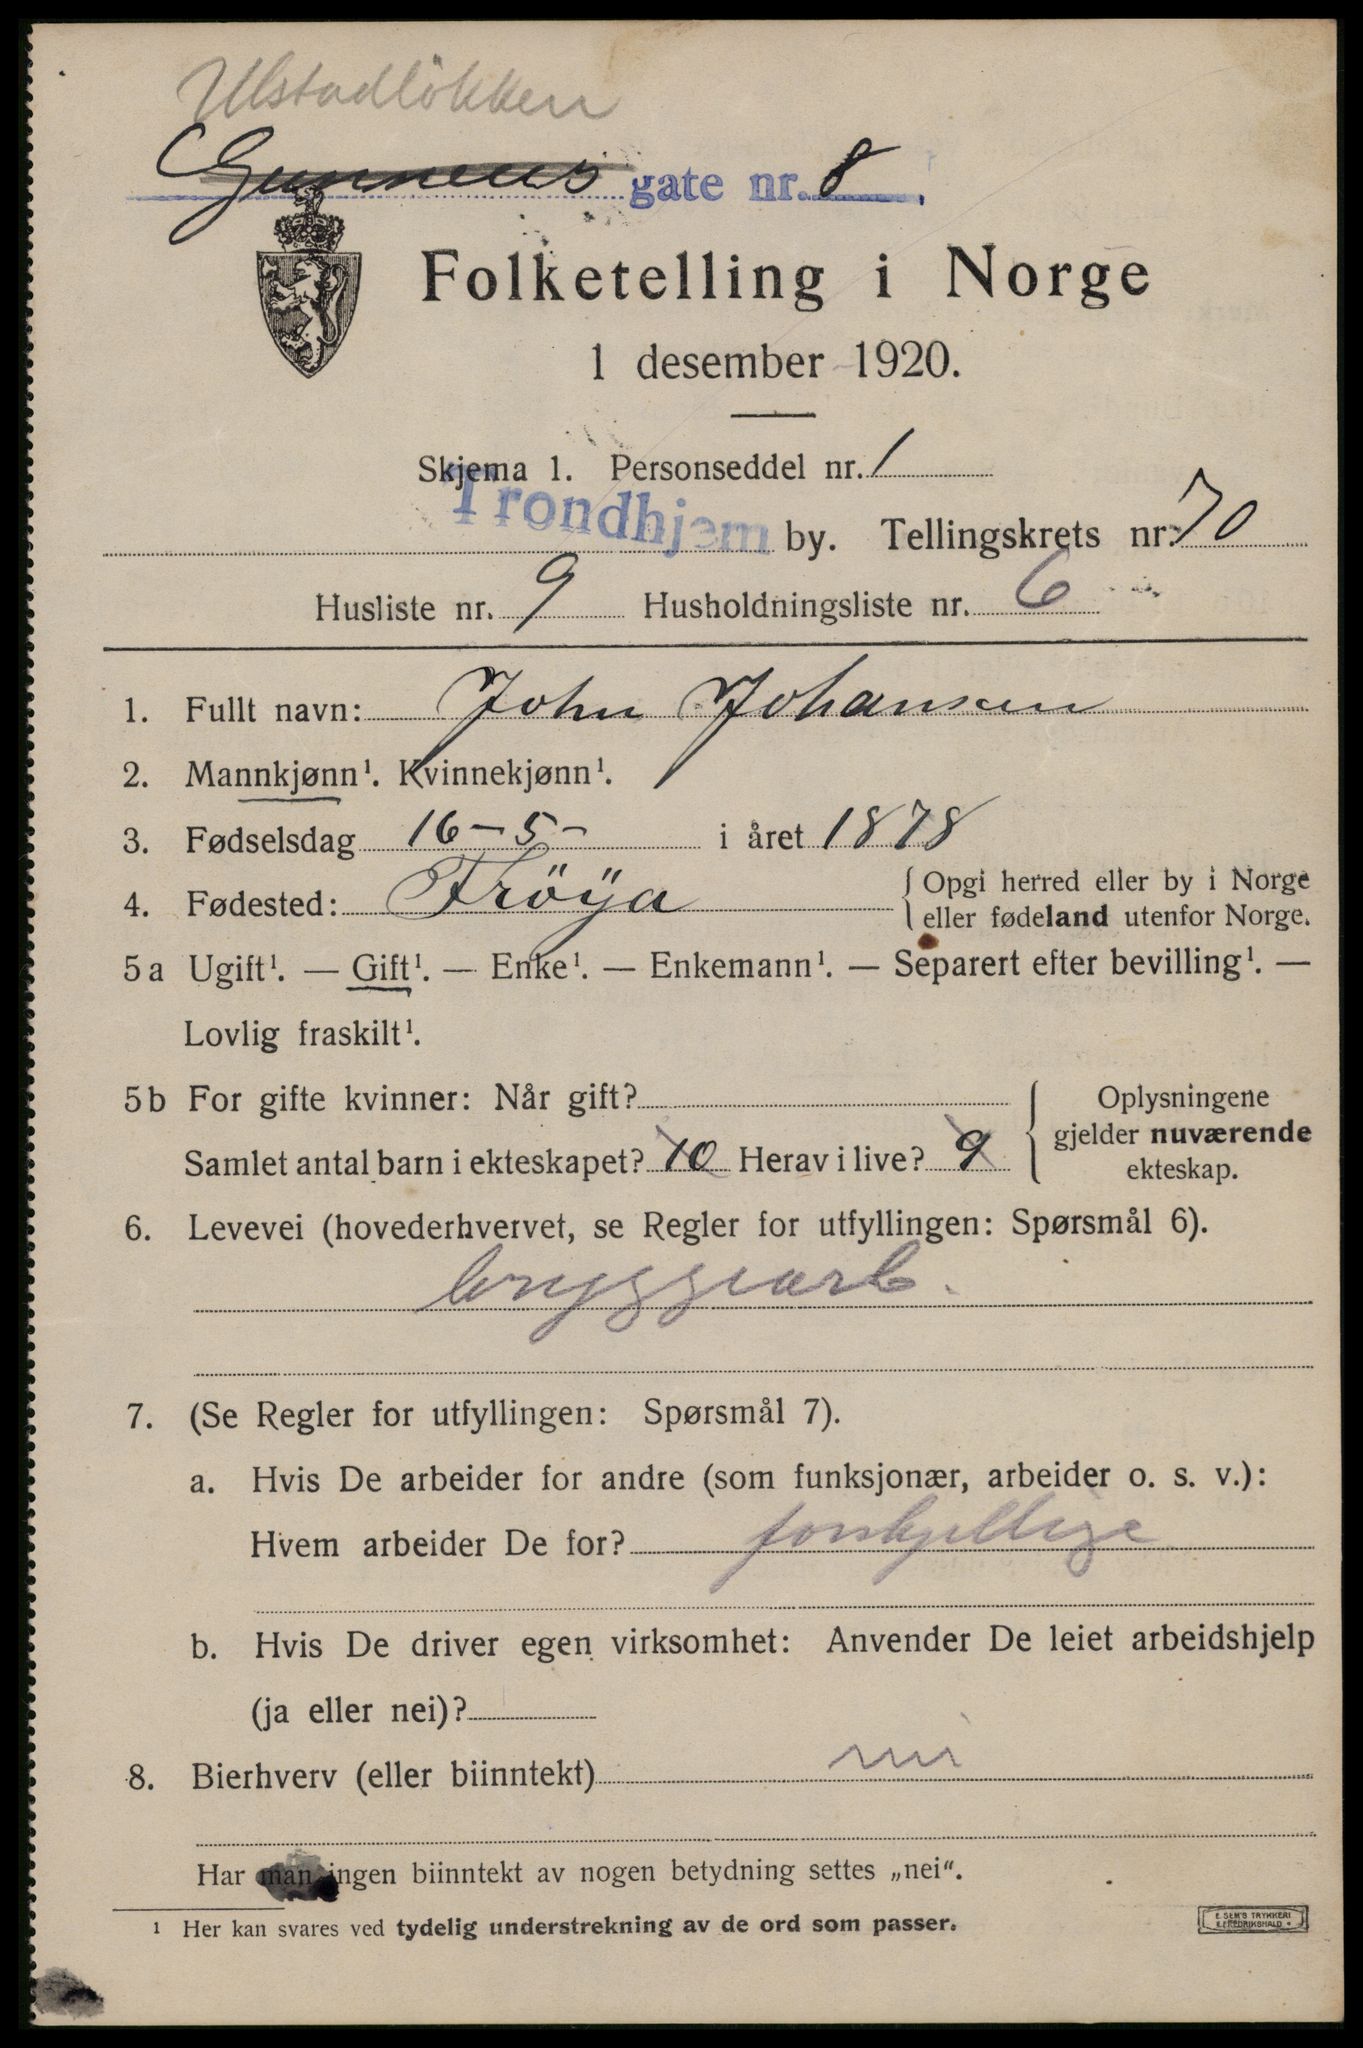 Ulstadløkken
Gunnerus gate nr. 8
Folketelling i Norge
1 desember 1920.
Skjema 1. Personseddel nr. 1
Trondhjem by. Tellingskrets nr. 70
Husliste nr. 9 Husholdningsliste nr. 6
1. Fullt navn: John Johansen
2. Mannkjønn¹. Kvinnekjønn¹.
3. Fødselsdag 16-5- i året 1878
4. Fødested: Fröya { Opgi herred eller by i Norge
eller fødeland utenfor Norge.
5a Ugift¹. — Gift¹. — Enke¹. — Enkemann¹. — Separert efter bevilling¹. —
Lovlig fraskilt¹.
5b For gifte kvinner: Når gift? { Oplysningene
gjelder nuværende
Samlet antal barn i ekteskapet? 10 Herav i live? 9
ekteskap.
6. Levevei (hovederhvervet, se Regler for utfyllingen: Spørsmål 6).
bryggearb.
7. (Se Regler for utfyllingen: Spørsmål 7).
a. Hvis De arbeider for andre (som funksjonær, arbeider o. s. v.):
Hvem arbeider De for? forskjellige
b. Hvis De driver egen virksomhet: Anvender De leiet arbeidshjelp
(ja eller nei)?
8. Bierhverv (eller biinntekt) nei
Har man ingen biinntekt av nogen betydning settes „nei“.
¹ Her kan svares ved tydelig understrekning av de ord som passer.
E. SEM'S TRYKKERI
FREDRIKSHALD